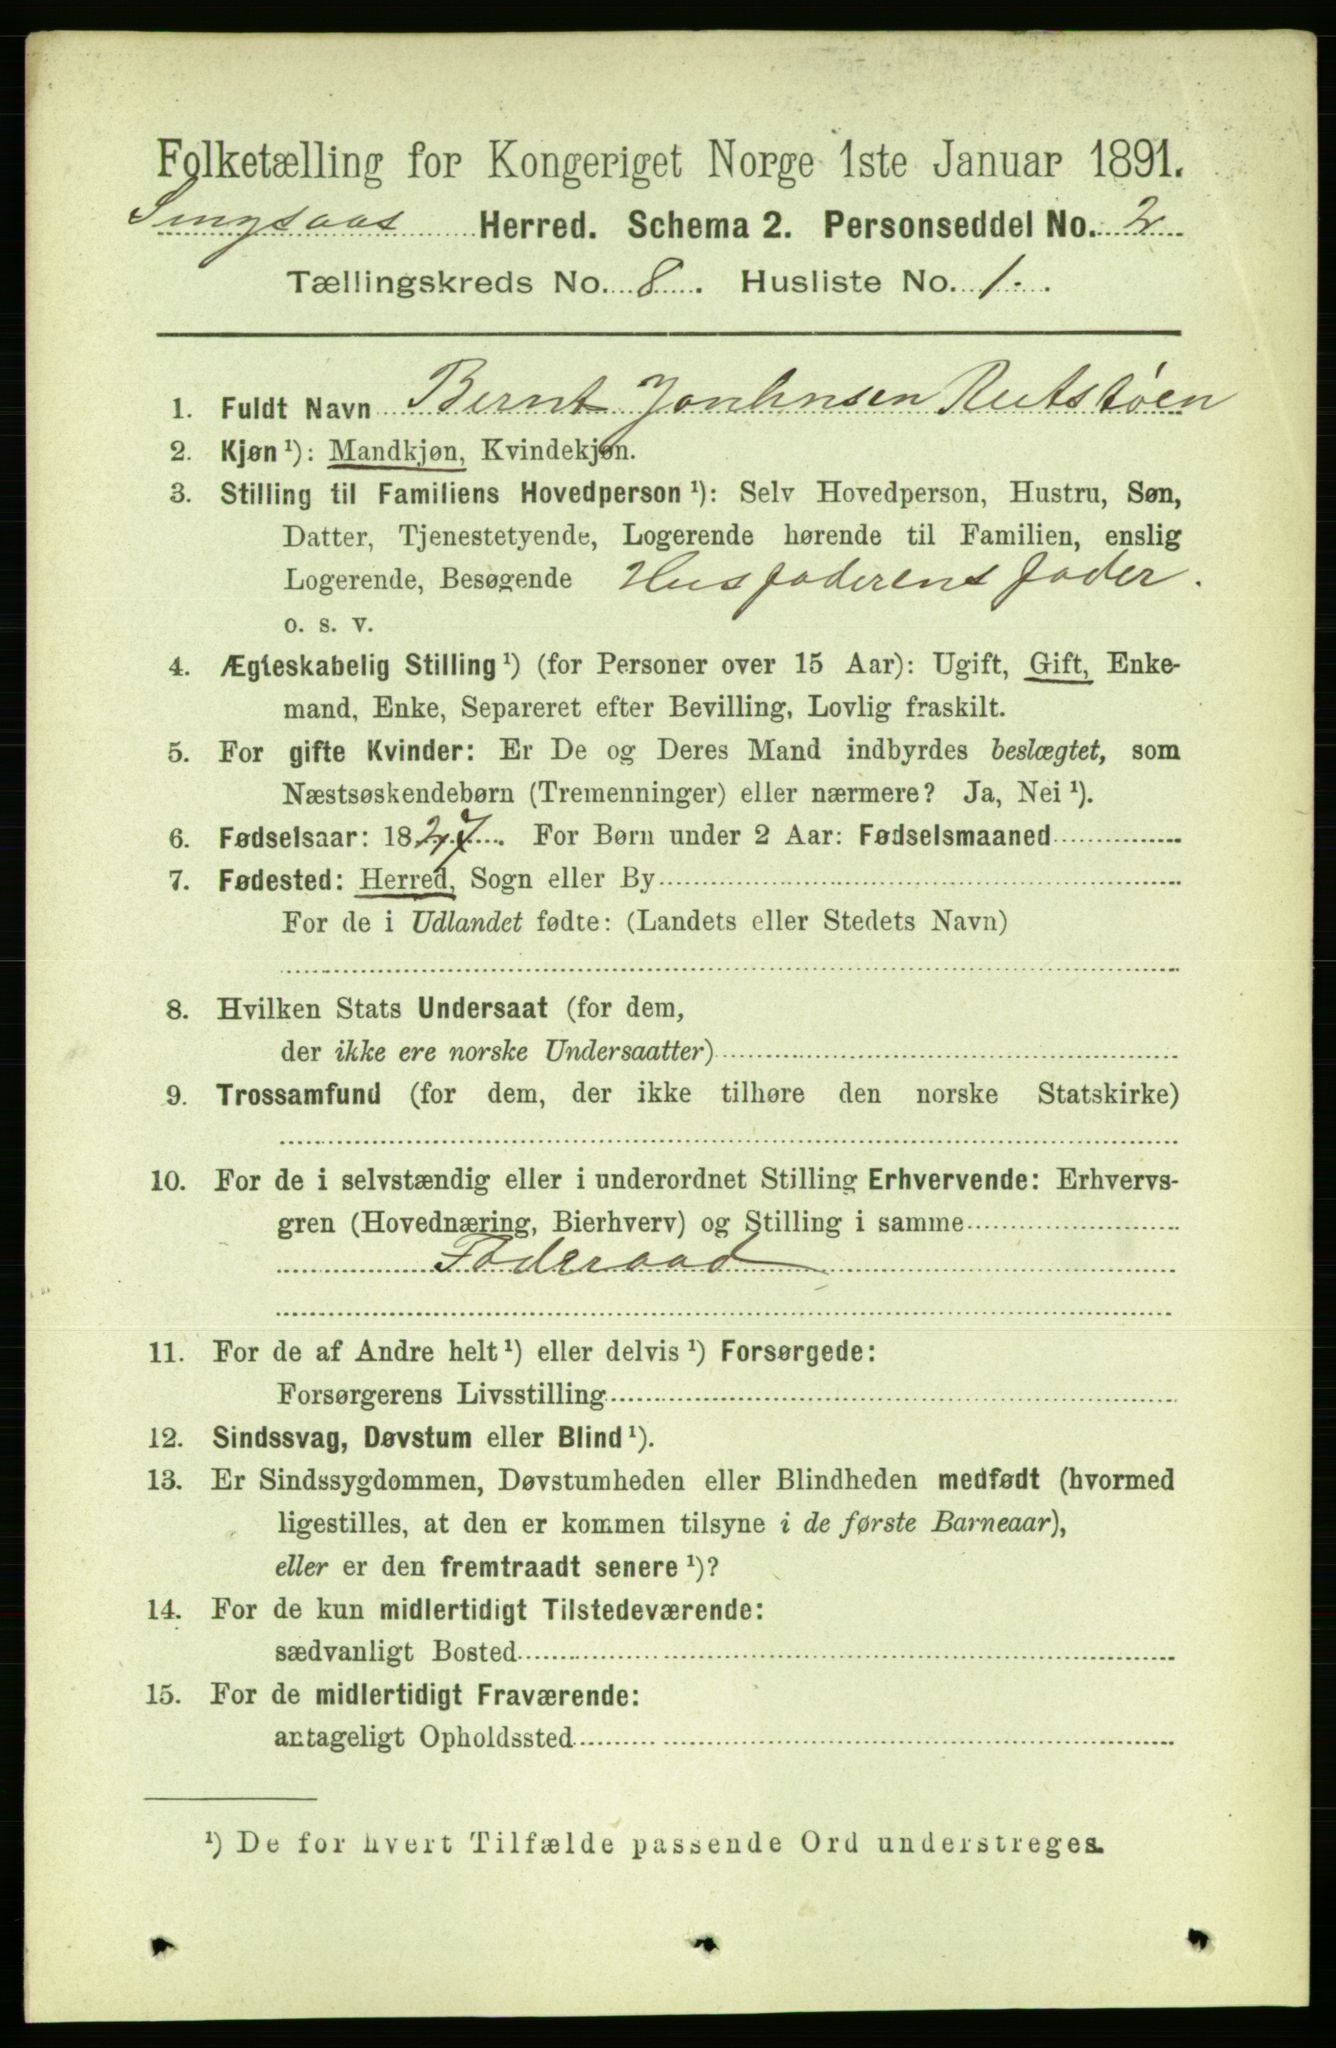 Folketælling for Kongeriget Norge 1ste Januar 1891.
Singsaas Herred. Schema 2. Personseddel No. 2
Tællingskreds No. 8. Husliste No. 1.
1. Fuldt Navn Bernt Johnsen Rutstøen
2. Kjøn ¹): Mandkjøn, Kvindekjøn.
3. Stilling til Familiens Hovedperson ¹): Selv Hovedperson, Hustru, Søn,
Datter, Tjenestetyende, Logerende hørende til Familien, enslig
Logerende, Besøgende Husfaderens fader.
o. s. v.
4. Ægteskabelig Stilling ¹) (for Personer over 15 Aar): Ugift, Gift, Enke-
mand, Enke, Separeret efter Bevilling, Lovlig fraskilt.
5. For gifte Kvinder: Er De og Deres Mand indbyrdes beslægtet, som
Næstsøskendebørn (Tremenninger) eller nærmere? Ja, Nei ¹).
6. Fødselsaar: 1827. For Børn under 2 Aar: Fødselsmaaned
7. Fødested: Herred, Sogn eller By
For de i Udlandet fødte: (Landets eller Stedets Navn)
8. Hvilken Stats Undersaat (for dem,
der ikke ere norske Undersaatter)
9. Trossamfund (for dem, der ikke tilhøre den norske Statskirke)
10. For de i selvstændig eller i underordnet Stilling Erhvervende: Erhvervs-
gren (Hovednæring, Bierhverv) og Stilling i samme
Føderaad
11. For de af Andre helt ¹) eller delvis ¹) Forsørgede:
Forsørgerens Livsstilling
12. Sindssvag, Døvstum eller Blind ¹).
13. Er Sindssygdommen, Døvstumheden eller Blindheden medfødt (hvormed
ligestilles, at den er kommen tilsyne i de første Barneaar),
eller er den fremtraadt senere ¹)?
14. For de kun midlertidigt Tilstedeværende:
sædvanligt Bosted
15. For de midlertidigt Fraværende:
antageligt Opholdssted
¹) De for hvert Tilfælde passende Ord understreges.